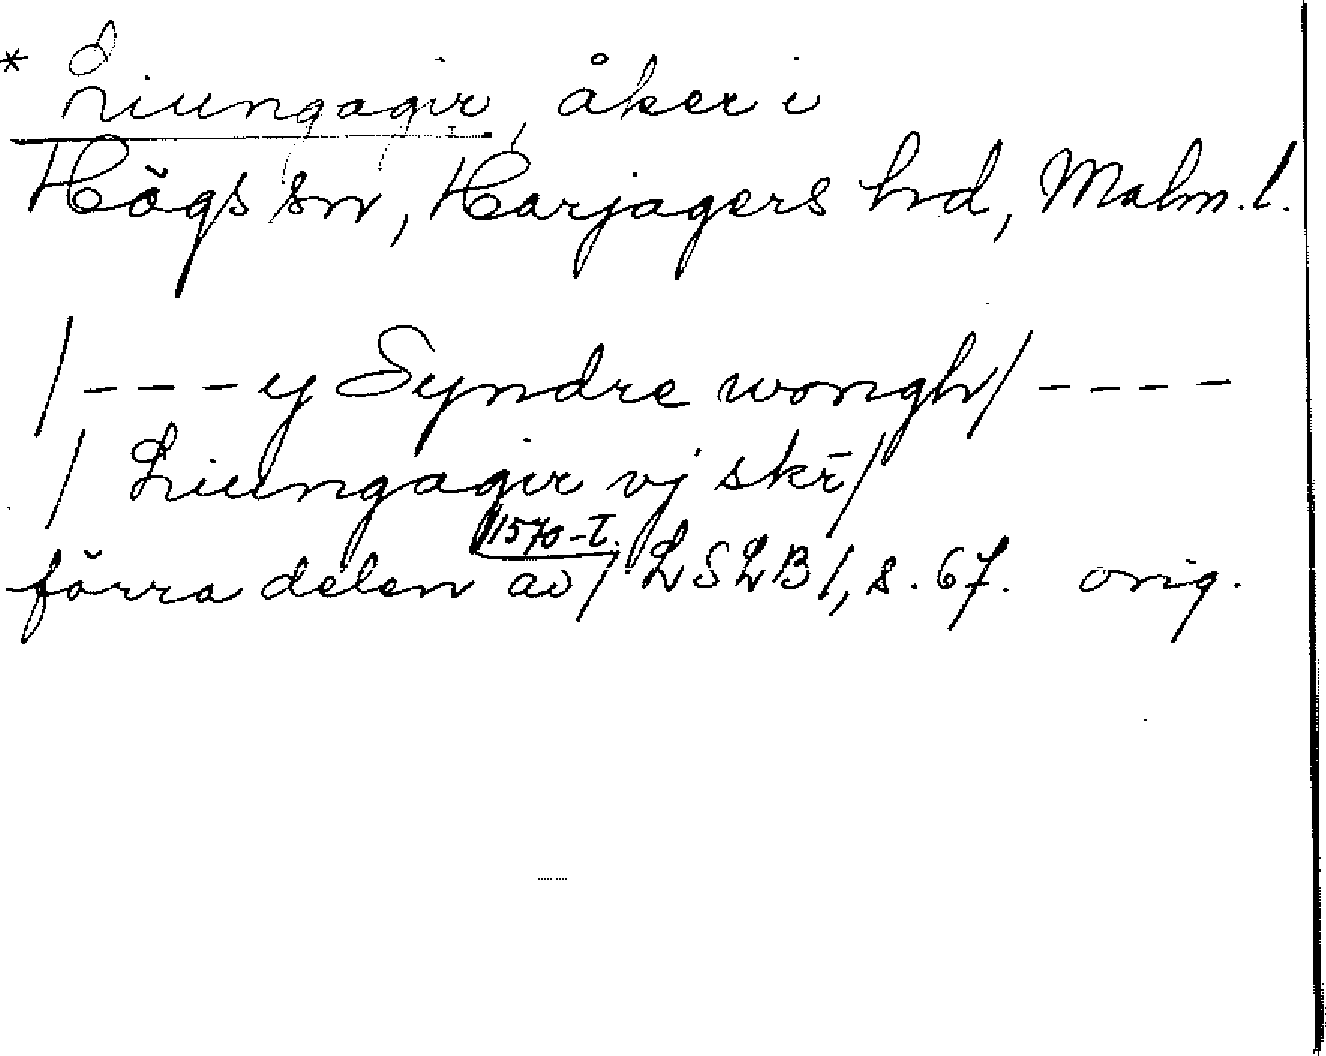 * Liungagir, åker i
Högs sn, Harjagers hd, Malm. l.
/ - - - y Syndre wongh / - - - -
/ Liungagir vj skr̄ /
förra delen av / 1570-t. LSLB 1, s. 67. orig.